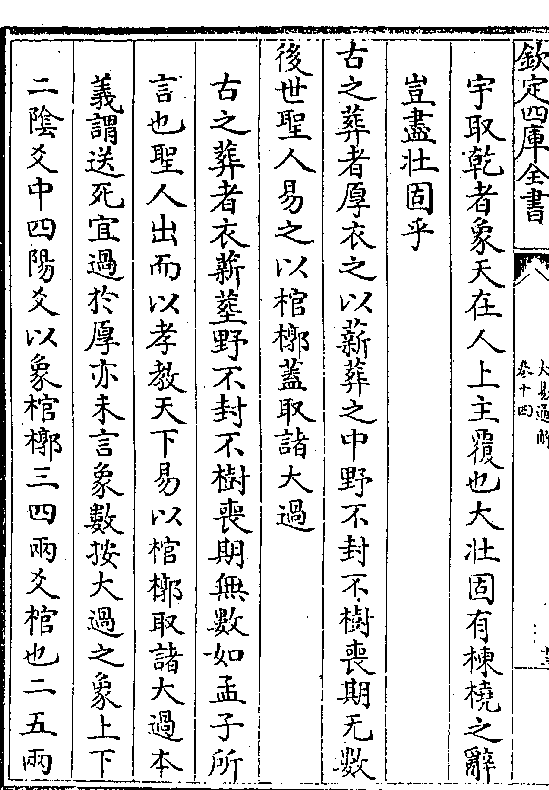 欽定四庫全書
大易通解
卷十四
宇取乾者象天在人上主覆也大壯固有棟橈之辭
豈盡壯固乎
古之葬者厚衣之以薪葬之中野不封不樹喪期无數
後世聖人易之以棺槨蓋取諸大過
古之葬者衣薪塟野不封不樹喪期無數如孟子所
言也聖人出而以孝教天下易以棺槨取諸大過本
義謂送死宜過於厚亦未言象數按大過之象上下
二陰爻中四陽爻以象棺槨三四兩爻棺也二五兩